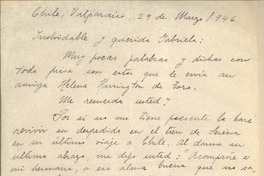 Chile, Valparaíso, 29 de Marzo 1946
Inolvidable y querida Gabriela:
Muy pocas palabras y dichas con
toda prisa son estas que le envía su
amiga Helena Harrington de Toro.
Me recuerda usted?
Por si no me tiene presente la haré
revivir su despedida en el tren de
su último viaje a Chile. Al darme su
último abrazo, me dijo usted: "Acompañe a
mi hermana, es una alma buena que no sa